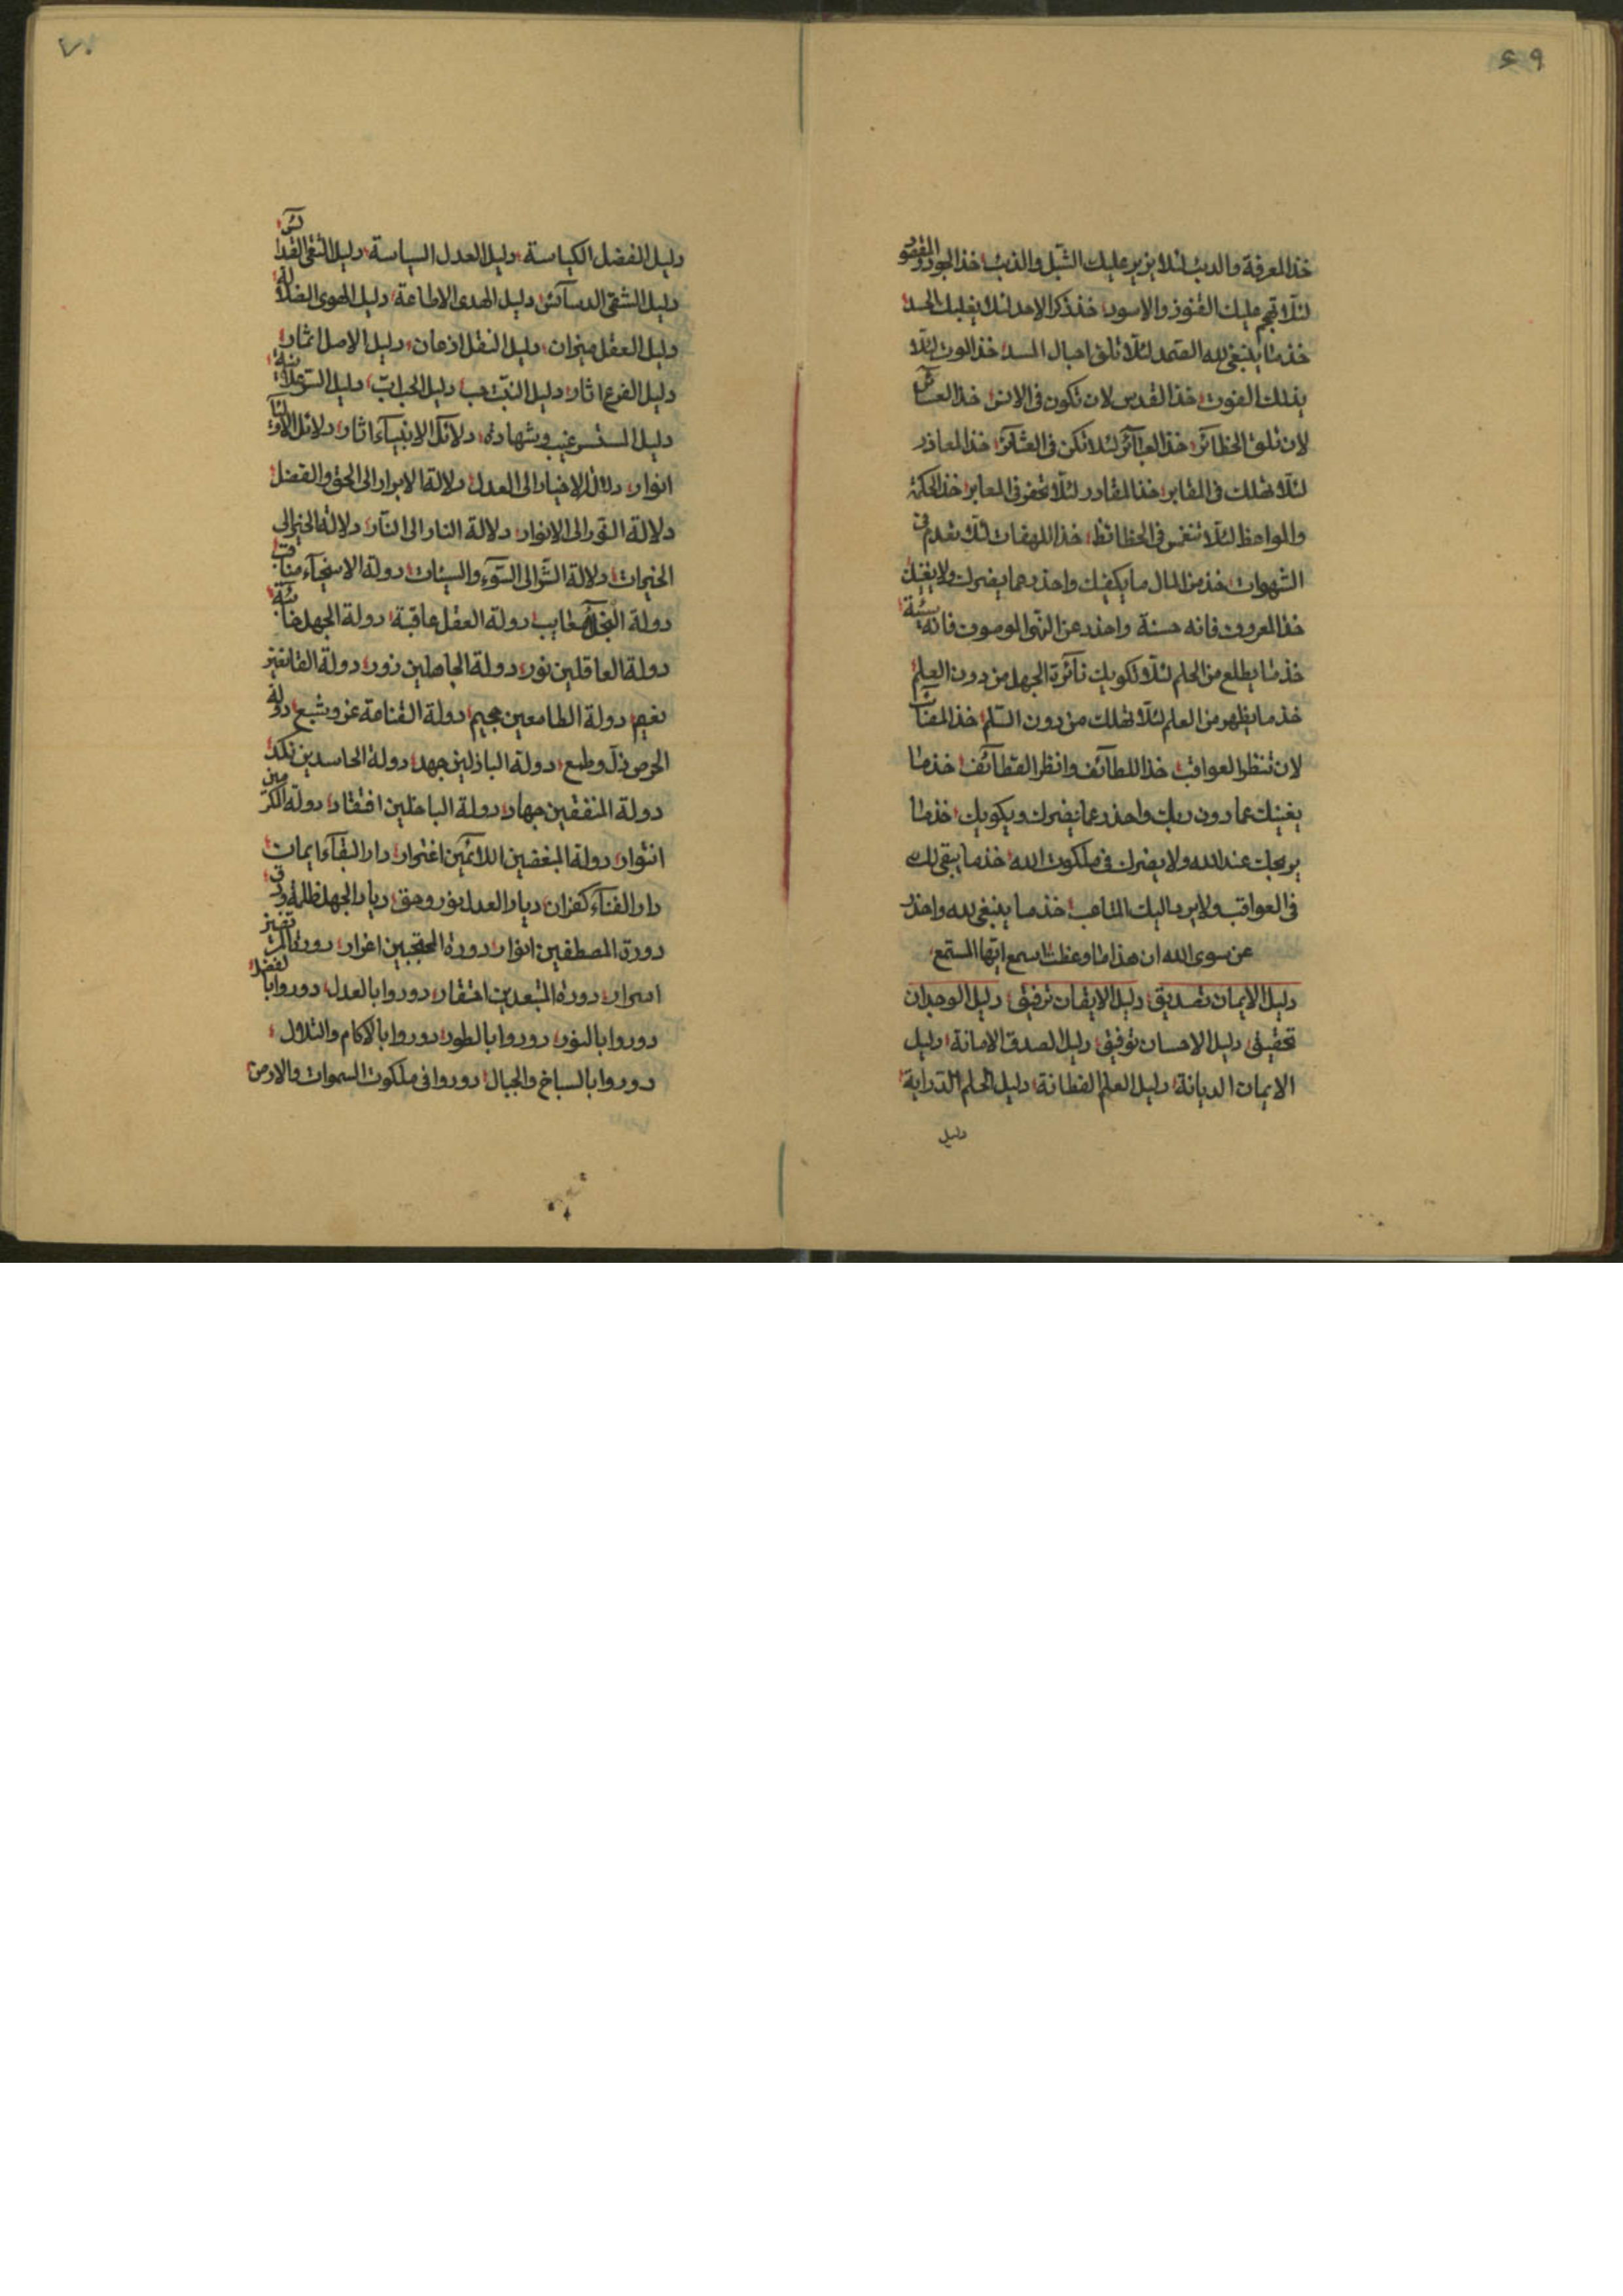 ٦٩
خذ المعرفة والدب لئلا يزير عليك الشبل والذئب خذ الجود والمقصود
لئلا تهجم عليك الفنوذ والاسود خذ ذكر الاحد لئلا يغلبك الحسد
خذ ما ينبغى لله الصمد لئلا تلق احبال المسد خذ الموت لئلا
يذلك الفوت خذ القدس لان تكون فى الانس خذ
لان تلق الحظائر خذ لئلا تكن فى خذ المعاذر
لئلا تهلك فى المقابر خذ المقادر لئلا تحفر فى المعابر خذ الحكمة
والمواعظ لئلا تنغمس فى خذ اللهفات لئلا تقدم فى
الشهوات خذ من المال ما يكفيك واحذر عما يضرك ولا يغنيك
خذ المعروف فانه حسنة واحذر عن النهى الموصوف فانه سيئة
خذ ما يطلع من الحلم لئلا تكويك نائرة الجهل من دون العلم
خذ ما يظهر من العلم لئلا تهلك من دون السلم خذ
لان تنظر العواقب خذ اللطائف وانظر القطائف خذ ما
يغنيك عما دون ربك واحذر عما يضرك ويكويك خذ ما
يريحك عند الله ولا يضرك فى ملكوت الله خذ ما يبقى لك
فى العواقب ولا يرد اليك المتاعب خذ ما ينبغى لله واحذر
عن سوى الله ان هذا ما وعظت اسمع ايها المستمع
دليل الايمان تصديق دليل الايقان ترفيق دليل الوجدان
تحقيق دليل الاحسان توفيق دليل الصدق الامانة دليل
الايمان الديانة دليل العلم الفطانة دليل الحلم الدراية
دليل
٧٠
دليل الفضل الكياسة دليل العدل السياسة دليل التقى القدس
دليل الشقى الدسائس دليل الهدى الاطاعة دليل الهوى الضلالة
دليل العقل ميزان دليل النقل اذعان دليل الاصل اثمار
دليل الفرع اثار دليل النبت حب دليل الحب اب دليل السر علانية
دليل الستر غيب وشهادة دلائل الانبياء اثار دلائل الاولياء
انوار دلالة الاخيار الى العدل دلالة الابرار الى الحق والفضل
دلالة النور الى الانوار دلالة النار الى النار دلالة الخير الى
الخيرات دلالة الشر الى السوء والسيئات دولة الاسخياء مناقب
دولة البخلاء دولة العقل عاقبة دولة الجهل
دولة العاقلين نور دولة الجاهلين زور دولة القانعين
نعيم دولة الطامعين جحيم دولة القناعة عز وشبع دولة
الحرص ذل وطبع دولة الباذلين جهد دولة الحاسدين نكد
دولة المنفقين جهاد دولة الباخلين افتقار دولة المكرمين
انوار دولة المبغضين اللائمين اغترار دار البقاء ايمان
دار الفناء كفران ديار العدل نور وحق ديار الجهل ظلمة
دورة المصطفين انوار دورة المحتجبين اغرار دورة
اسرار دورة المتبعدين احتقار دوروا بالعدل دوروا بالفضل
دوروا بالنور دوروا بالطور دوروا بالاكام والتلال
دوروا بالسباخ والجبال دوروا فى ملكوت السموات والارض